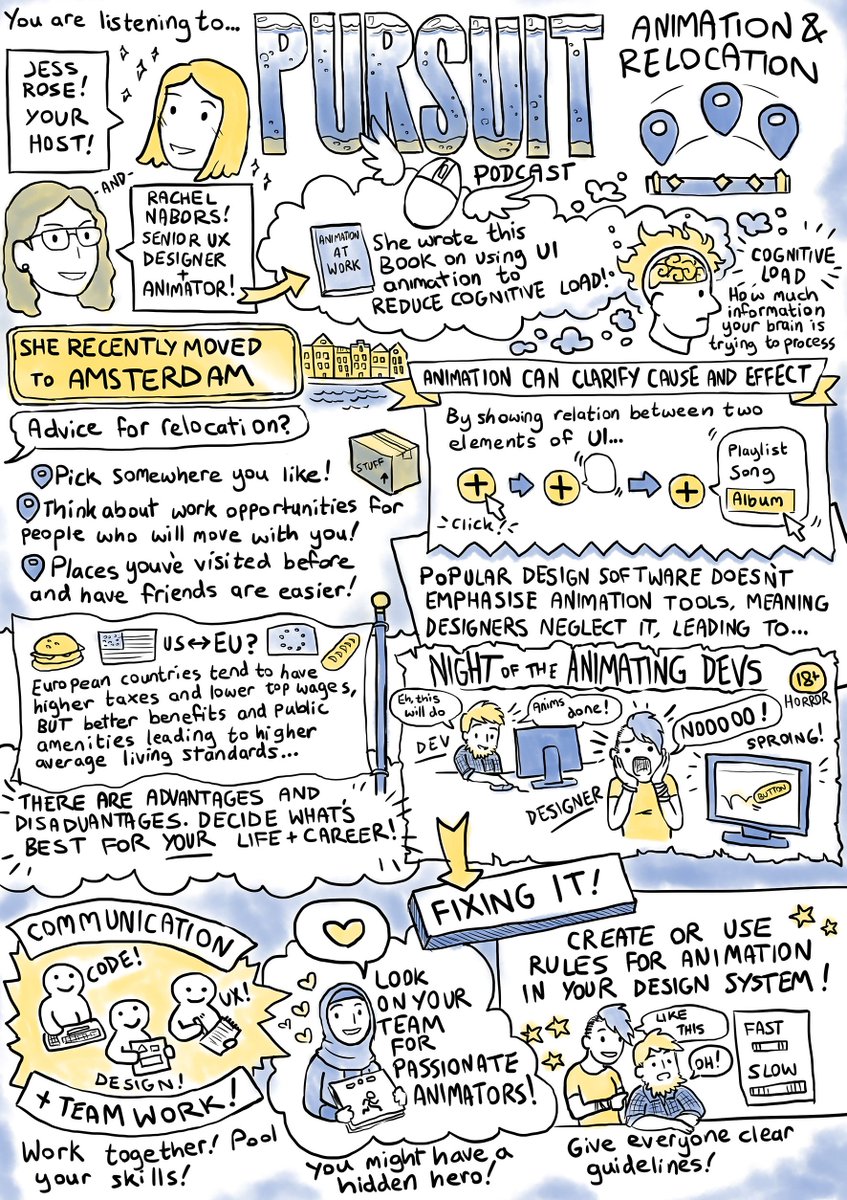 You are listening to...
PURSUIT
PODCAST
ANIMATION &
RELOCATION
JESS
ROSE!
YOUR
HOST!
-AND-
RACHEL
NABORS!
SENIOR UX
DESIGNER
+
ANIMATOR!
ANIMATION
AT
WORK
She wrote this
Book on using UI
animation to
REDUCE COGNITIVE LOAD!
COGNITIVE
LOAD
How much
information
your brain is
trying to process
SHE RECENTLY MOVED
TO AMSTERDAM
Advice for relocation?
STUFF
Pick somewhere you like!
Think about work opportunities for
people who will move with you!
Places you've visited before
and have friends are easier!
ANIMATION CAN CLARIFY CAUSE AND EFFECT
By showing relation between two
elements of UI...
Click!
Playlist
Song
Album
US↔EU?
European countries tend to have
higher taxes and lower top wages,
BUT better benefits and public
amenities leading to higher
average living standards...
THERE ARE ADVANTAGES AND
DISADVANTAGES. DECIDE WHAT'S
BEST FOR YOUR LIFE + CAREER!
POPULAR DESIGN SOFTWARE DOESN'T
EMPHASISE ANIMATION TOOLS, MEANING
DESIGNERS NEGLECT IT, LEADING TO...
NIGHT OF THE ANIMATING DEVS
18+
HORROR
Eh, this
will do
DEV
Anims
done!
DESIGNER
NOOOOO!
SPROING!
BUTTON
FIXING IT!
COMMUNICATION
CODE!
UX!
DESIGN!
+ TEAM WORK!
Work together! Pool
your skills!
LOOK
ON YOUR
TEAM
FOR
PASSIONATE
ANIMATORS!
You might have a
hidden hero!
CREATE OR USE
RULES FOR ANIMATION
IN YOUR DESIGN SYSTEM!
LIKE
THIS
OH!
FAST
SLOW
Give everyone clear
guidelines!